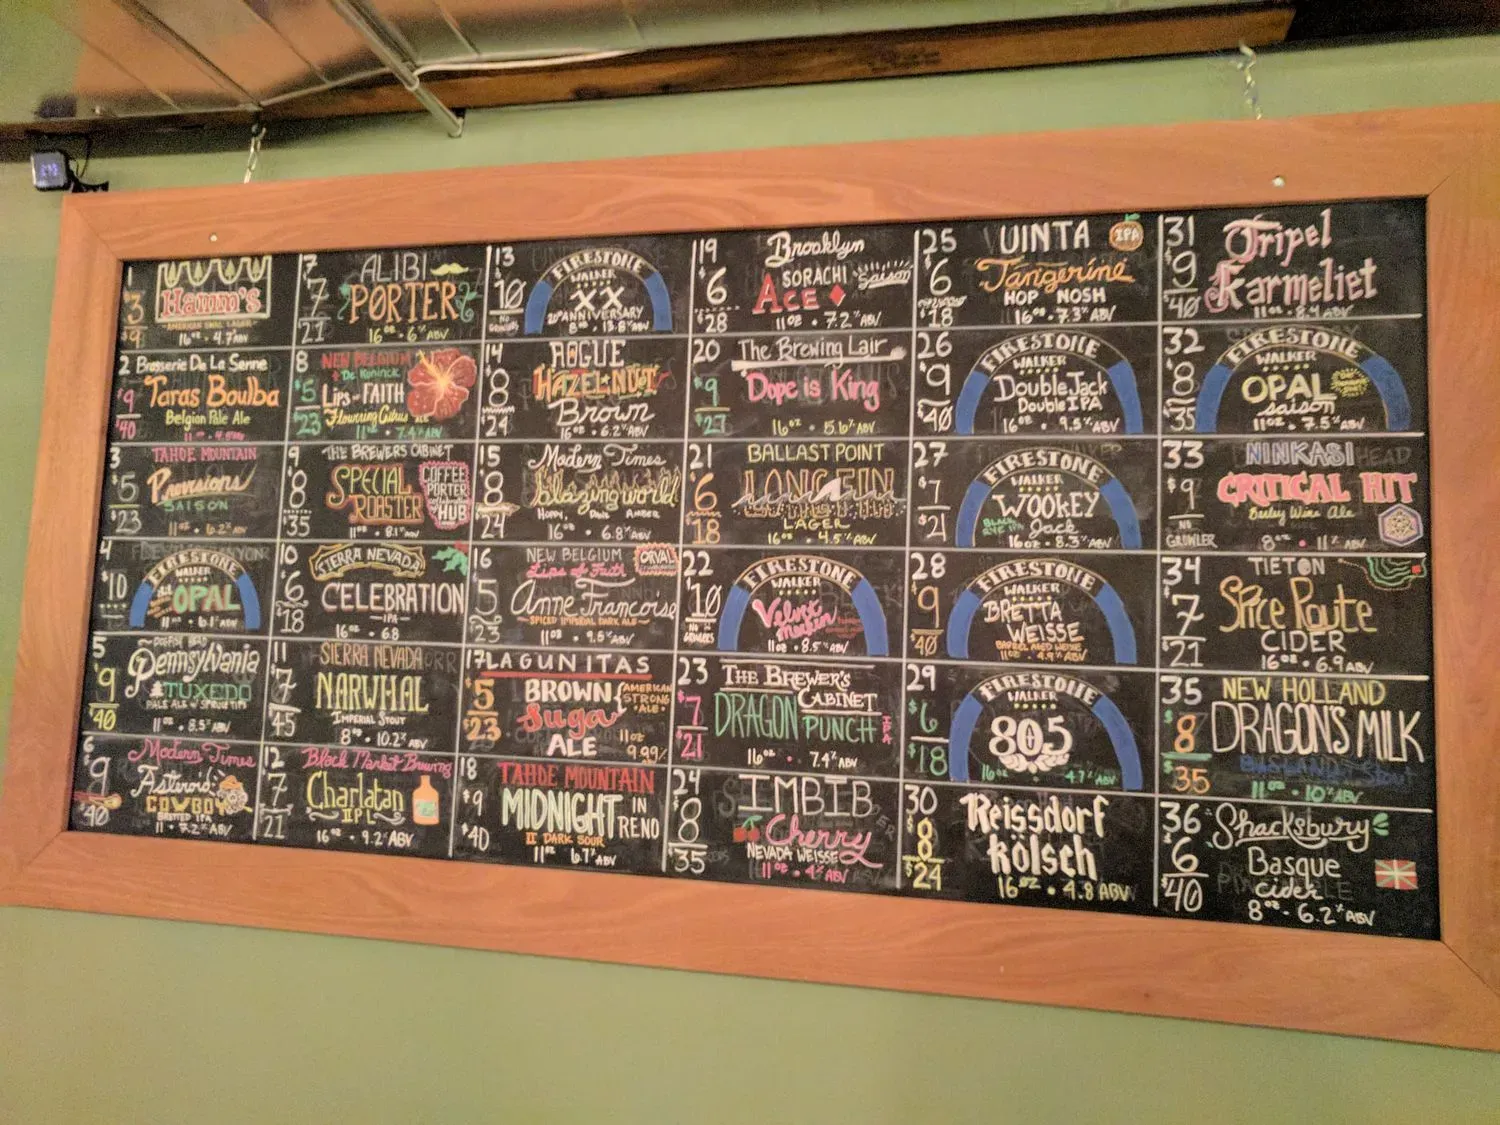 1
$3
$9
Hamm's
16oz • 4.7% ABV
2 Brasserie De La Senne
$9
$40
Taras Boulba
Belgian Pale Ale
3
$5
$23
TAHOE MOUNTAIN
Provisions
SAISON
11oz • 6.2% ABV
4
$10
FIRESTONE
WALKER
OPAL
5
$9
$40
DOGFISH HEAD
Pennsylvania
TUXEDO
PALE ALE w/ SPRUCE TIPS
11oz • 8.5% ABV
6
$9
$40
Modern Times
Asteroid
COWBOY
BRETTED IPA
11 • 7.2% ABV
7
$7
21
ALIBI
PORTER
16oz • 6% ABV
8
$5
$23
NEW BELGIUM
De Koninck
LIPS of FAITH
Flowering Citrus ALE
11oz • 7.4% ABV
9
$8
$35
THE BREWERS CABINET
SPECIAL
ROASTER
COFFEE
PORTER
HUB
11oz • 8.1% ABV
10
$6
$18
SIERRA NEVADA
CELEBRATION
IPA
16oz • 6.8
11
$7
$45
SIERRA NEVADA
NARWHAL
IMPERIAL STOUT
8oz • 10.2% ABV
12
$7
21
Black Market Brewing
Charlatan
IPL
16oz • 9.2% ABV
13
$10
NO
GROWLERS
FIRESTONE
WALKER
XX
20th ANNIVERSARY
8oz • 13.8% ABV
14
$8
$24
ROGUE
HAZELNUT
Brown
16oz • 6.2% ABV
15
$8
$24
Modern Times
blazing world
HOPPY, DANK AMBER
16oz • 6.8% ABV
16
$5
$23
NEW BELGIUM
Lips of Faith
ORVAL
Anne Francoise
SPICED IMPERIAL DARK ALE
11oz • 9.5% ABV
17 LAGUNITAS
$5
$23
BROWN
Suga
ALE
AMERICAN
STRONG
ALE
11oz
9.99%
18
$9
$40
TAHOE MOUNTAIN
MIDNIGHT IN
RENO
II DARK SOUR
11oz 6.7% ABV
19
$6
$28
Brooklyn
SORACHI
ACE
Saison
11oz • 7.2% ABV
20
$9
$27
The Brewing Lair
Dope is King
16oz • 5.6% ABV
21
$6
$18
BALLAST POINT
LONGFIN
LAGER
16oz • 4.5% ABV
22
$10
NO
GROWLERS
FIRESTONE
WALKER
Velvet
merkin
11oz • 8.5% ABV
23
$7
$21
THE BREWER'S
CABINET
DRAGON PUNCH
IPA
16oz • 7.4% ABV
24
$8
$35
IMBIB
Cherry
NEVADA WEISSE
11oz • 4% ABV
25
$6
$18
UINTA
IPA
Tangerine
HOP NOSH
16oz • 7.3% ABV
26
$9
$40
FIRESTONE
WALKER
Double Jack
Double IPA
16oz • 9.5% ABV
27
$7
$21
FIRESTONE
WALKER
WOOKEY
Jack
16oz • 8.3% ABV
28
$9
$40
FIRESTONE
WALKER
BRETTA
WEISSE
BARREL AGED WEISSE
11oz • 4.9% ABV
29
$6
$18
FIRESTONE
WALKER
805
16oz • 4.7% ABV
30
$8
$24
Reissdorf
Kölsch
16oz • 4.8 ABV
31
$9
$40
Tripel
Karmeliet
11oz • 8.4% ABV
32
$8
$35
FIRESTONE
WALKER
OPAL
saison
11oz • 7.5% ABV
33
$9
NO
GROWLER
NINKASI
CRITICAL HIT
Barley Wine Ale
8oz • 11% ABV
34
$7
$21
TIETON
Spice Route
CIDER
16oz • 6.9% ABV
35
$8
$35
NEW HOLLAND
DRAGON'S MILK
Stout
11oz • 10% ABV
36
$6
$40
Shacksbury
Basque
cider
8oz • 6.2% ABV